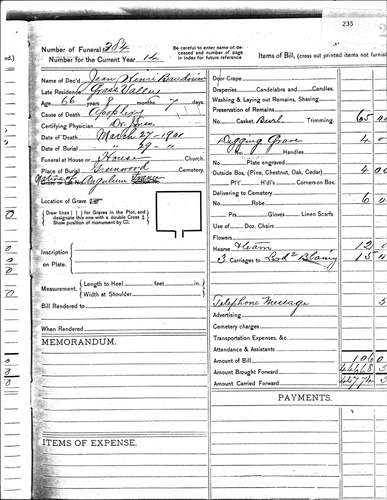 235
Number of Funeral 284
Number for the Current Year 14
Be carefully to enter name of deceased and number of page in index for future reference
Items of Bill, (cross out printed items not furnish
Name of Dec'd Jean Henri Baudoin
Late Residence Grass Valley
Age 66 years 8 months 7 days.
Cause of Death Apoplexy
Certifying Physician Dr. Jones
Date of Death March 27 - 1901
Date of Burial " 29 - "
Funeral at House or House Church.
Place of Burial Greenwood Cemetery.
Native of Angulime France
Location of Grave
Draw lines | | for Graves in the Plot, and designate this one with a double Cross
Show position of monument by
Inscription on Plate.
Measurement. Length to Heel feet in.
Width at Shoulder
Bill Rendered to
When Rendered
MEMORANDUM.
ITEMS OF EXPENSE.
Door Crape
Draperies. Candelabra and Candles.
Washing & Laying out Remains, Shaving.
Preservation of Remains
No. Casket, Burl Trimming. 65 00
Digging Grave 4 0
No. Handles
Plate engraved
Outside Box, (Pine, Chestnut, Oak, Cedar) 4 00
P'I'Y H'dl's Corners on Box.
Delivering to Cemetery
No. Robe 6 0
Prs. Gloves Linen Scarfs
Use of Doz. Chair
Flowers
Hearse Team 12 0
3 Carriages to 15 0
Telephone Message 5
Advertising
Cemetery charges
Transportation Expenses, &c
Attendance & Assistants
Amount of Bill 106 0
Amount Brought Forward 4668 5
Amount Carried Forward 4774 5
PAYMENTS.